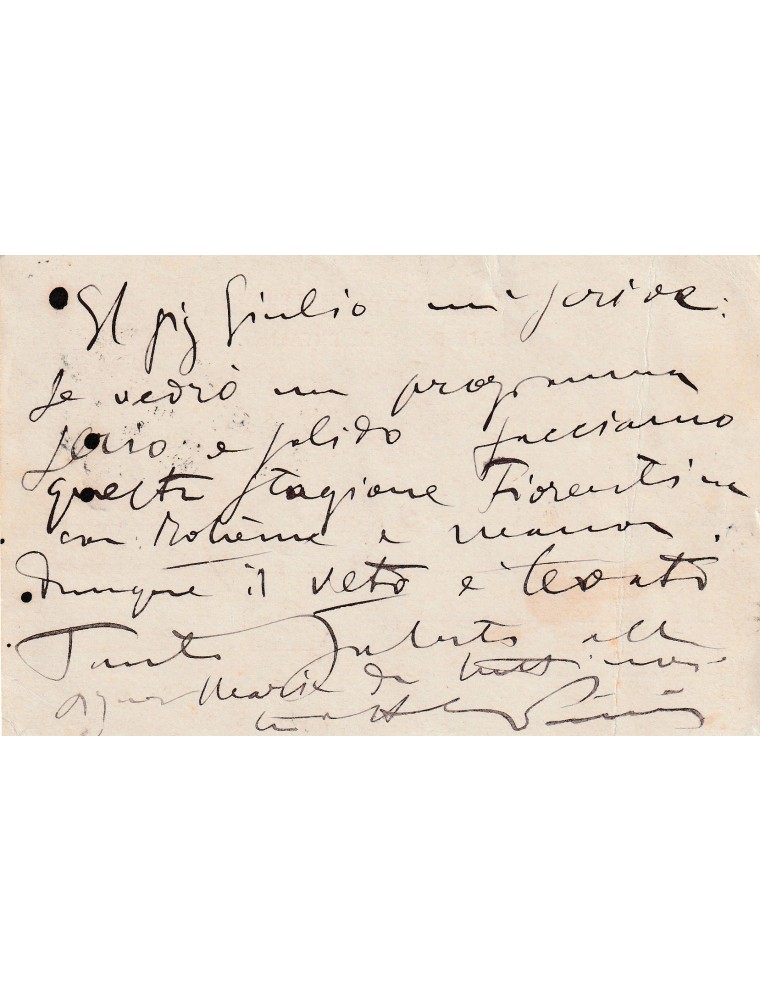 Il sig Giulio mi scrive:
se vedrò un programma
serio e solido facciamo
questa stagione Fiorentina
con Bohème e Manon.
Dunque il veto è levato
Tanti saluti alla
signora Maria da tutti noi
Puccini